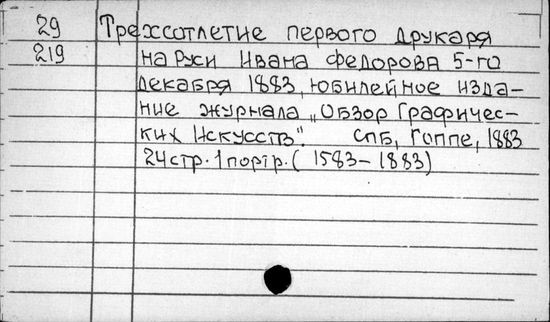 29 Трехсотлетие первого друкаря
219 на Руси Ивана Федорова 5-го
декабря 1883, юбилейное изда-
ние журнала „Обзор Графичес-
ких Искусств". СПБ, Гоппе, 1883
24 стр. 1 портр. (1583-1883)